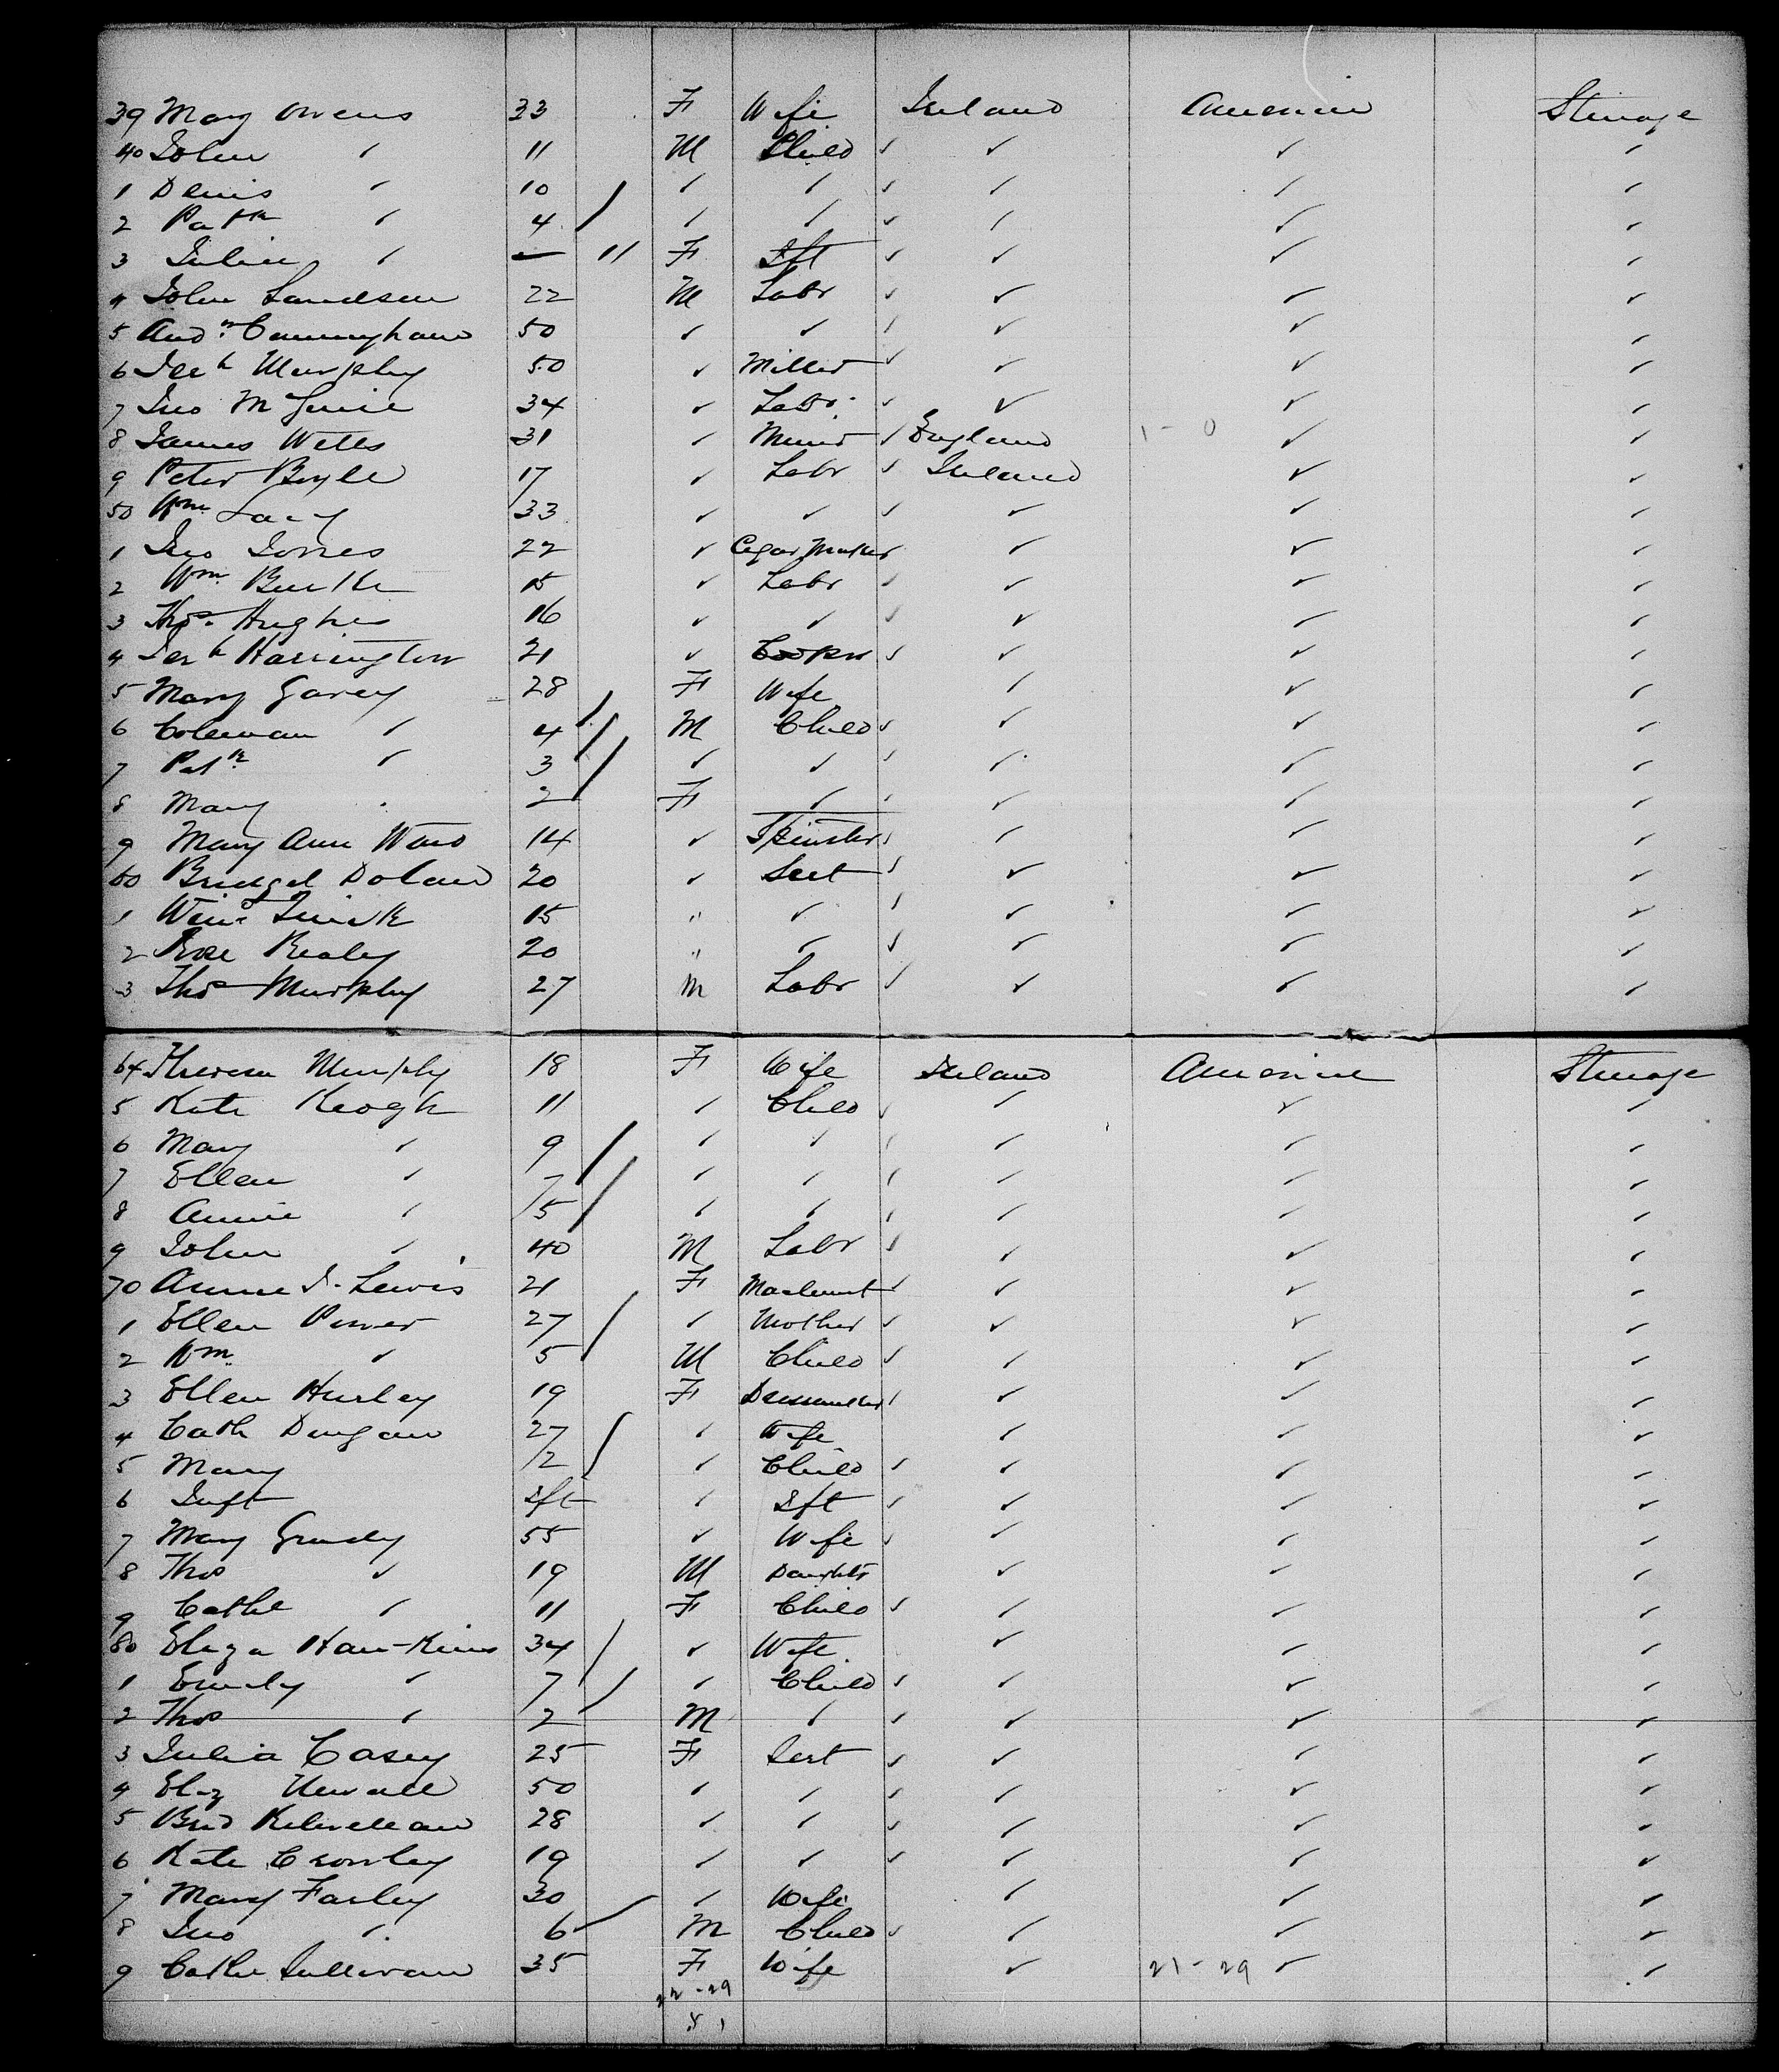 39 Mary Owens 33 F Wife Ireland America Steerage
40 John ✓ 11 M Child ✓ ✓ ✓ ✓
1 Denis ✓ 10 ✓ ✓ ✓ ✓ ✓ ✓
2 Patk ✓ 4 ✓ ✓ ✓ ✓ ✓ ✓
3 Julia ✓ — 11 F Ift ✓ ✓ ✓ ✓
4 John 22 M Labr ✓ ✓ ✓ ✓
5 Andw Cunningham 50 ✓ ✓ ✓ ✓ ✓ ✓
6 Jerh Murphy 50 ✓ Miller ✓ ✓ ✓ ✓
7 Jno McGuire 34 ✓ Labr ✓ ✓ ✓ ✓
8 James Wells 31 ✓ Miner ✓ England 1 - 0 ✓ ✓
9 Peter Boyle 17 ✓ Labr ✓ Ireland ✓ ✓
50 Wm Lacy 33 ✓ ✓ ✓ ✓ ✓ ✓
1 Jno Jones 22 ✓ Cigar Maker ✓ ✓ ✓
2 Wm Burke 15 ✓ Labr ✓ ✓ ✓ ✓
3 Thos Hughes 16 ✓ ✓ ✓ ✓ ✓ ✓
4 Jerh Harrington 21 ✓ Cooper ✓ ✓ ✓ ✓
5 Mary Garey 28 F Wife ✓ ✓ ✓
6 Coleman ✓ 4 M Child ✓ ✓ ✓ ✓
7 Patk ✓ 3 ✓ ✓ ✓ ✓ ✓ ✓
8 Mary 2 F ✓ ✓ ✓ ✓ ✓
9 Mary Ann Ward 14 ✓ Spinster ✓ ✓ ✓ ✓
60 Bridget Dolan 20 ✓ Sert ✓ ✓ ✓ ✓
1 Quirk 15 " ✓ ✓ ✓ ✓ ✓
2 Rose Realey 20 " ✓ ✓ ✓ ✓ ✓
3 Thos Murphy 27 M Labr ✓ ✓ ✓ ✓
64 Theresa Murphy 18 F Wife Ireland America Steerage
5 Kate Keogh 11 ✓ Child ✓ ✓ ✓ ✓
6 Mary ✓ 9 ✓ ✓ ✓ ✓ ✓ ✓
7 Ellen ✓ 7 ✓ ✓ ✓ ✓ ✓ ✓
8 Annie ✓ 5 ✓ ✓ ✓ ✓ ✓ ✓
9 John ✓ 40 M Labr ✓ ✓ ✓ ✓
70 Annie J. Lewis 21 F ✓ ✓ ✓ ✓
1 Ellen Power 27 ✓ Mother ✓ ✓ ✓ ✓
2 Wm ✓ 5 M Child ✓ ✓ ✓ ✓
3 Ellen Hurley 19 F Dressmaker ✓ ✓ ✓ ✓
4 Cath Dungan 27 ✓ Wife ✓ ✓ ✓
5 Mary 2 ✓ Child ✓ ✓ ✓ ✓
6 Inft Ift ✓ Ift ✓ ✓ ✓ ✓
7 Mary Grundy 55 ✓ Wife ✓ ✓ ✓ ✓
8 Thos ✓ 19 M Daughter ✓ ✓ ✓
9 Cathe ✓ 11 F Child ✓ ✓ ✓ ✓
80 Eliza Hawkins 34 ✓ Wife ✓ ✓ ✓
1 Emily ✓ 7 ✓ Child ✓ ✓ ✓ ✓
2 Thos ✓ 2 M ✓ ✓ ✓ ✓ ✓
3 Julia Casey 25 F Sert ✓ ✓ ✓ ✓
4 Eliz 50 ✓ ✓ ✓ ✓ ✓ ✓
5 Brid 28 ✓ ✓ ✓ ✓ ✓ ✓
6 Kate Crowley 19 ✓ ✓ ✓ ✓ ✓ ✓
7 Mary Farley 30 ✓ Wife ✓ ✓ ✓
8 Jno ✓ 6 M Child ✓ ✓ ✓ ✓
9 Cathe Sullivan 35 F Wife ✓ 21 - 29 ✓ ✓
22 - 29